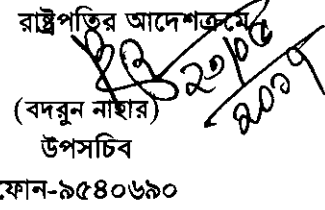 রাষ্ট্রপতির আদেশক্রমে
(বদরুন নাহার)
উপসচিব
ফোন-৯৫৪০৬৯০